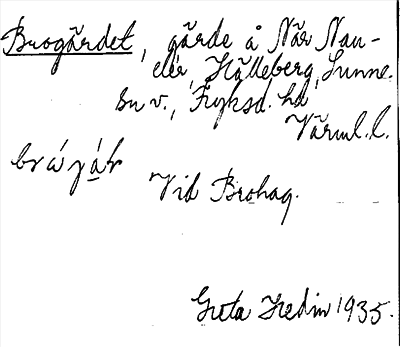 Brogärdet, gärde å När Nau-
elér, Hälleberg, Sunne.
sn v., Fryksd. hd
Värml. l.
Vid Brohag.
Greta Hedin 1935.